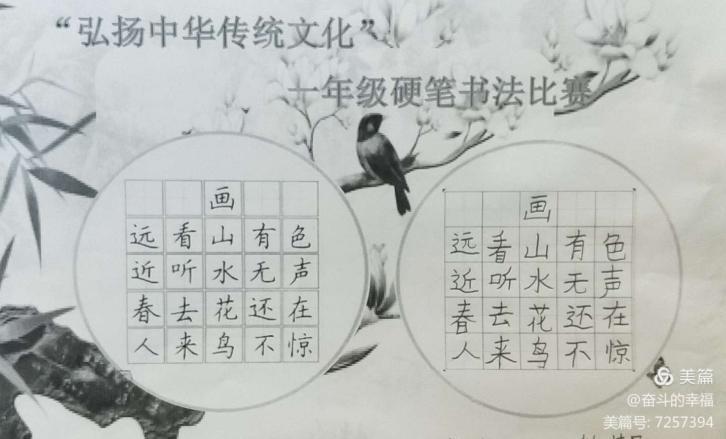 “弘扬中华传统文化”
一年级硬笔书法比赛
画
远看山有色
近听水无声
春去花还在
人来鸟不惊
画
远看山有色
近听水无声
春去花还在
人来鸟不惊
美篇
@奋斗的幸福
美篇号: 7257394